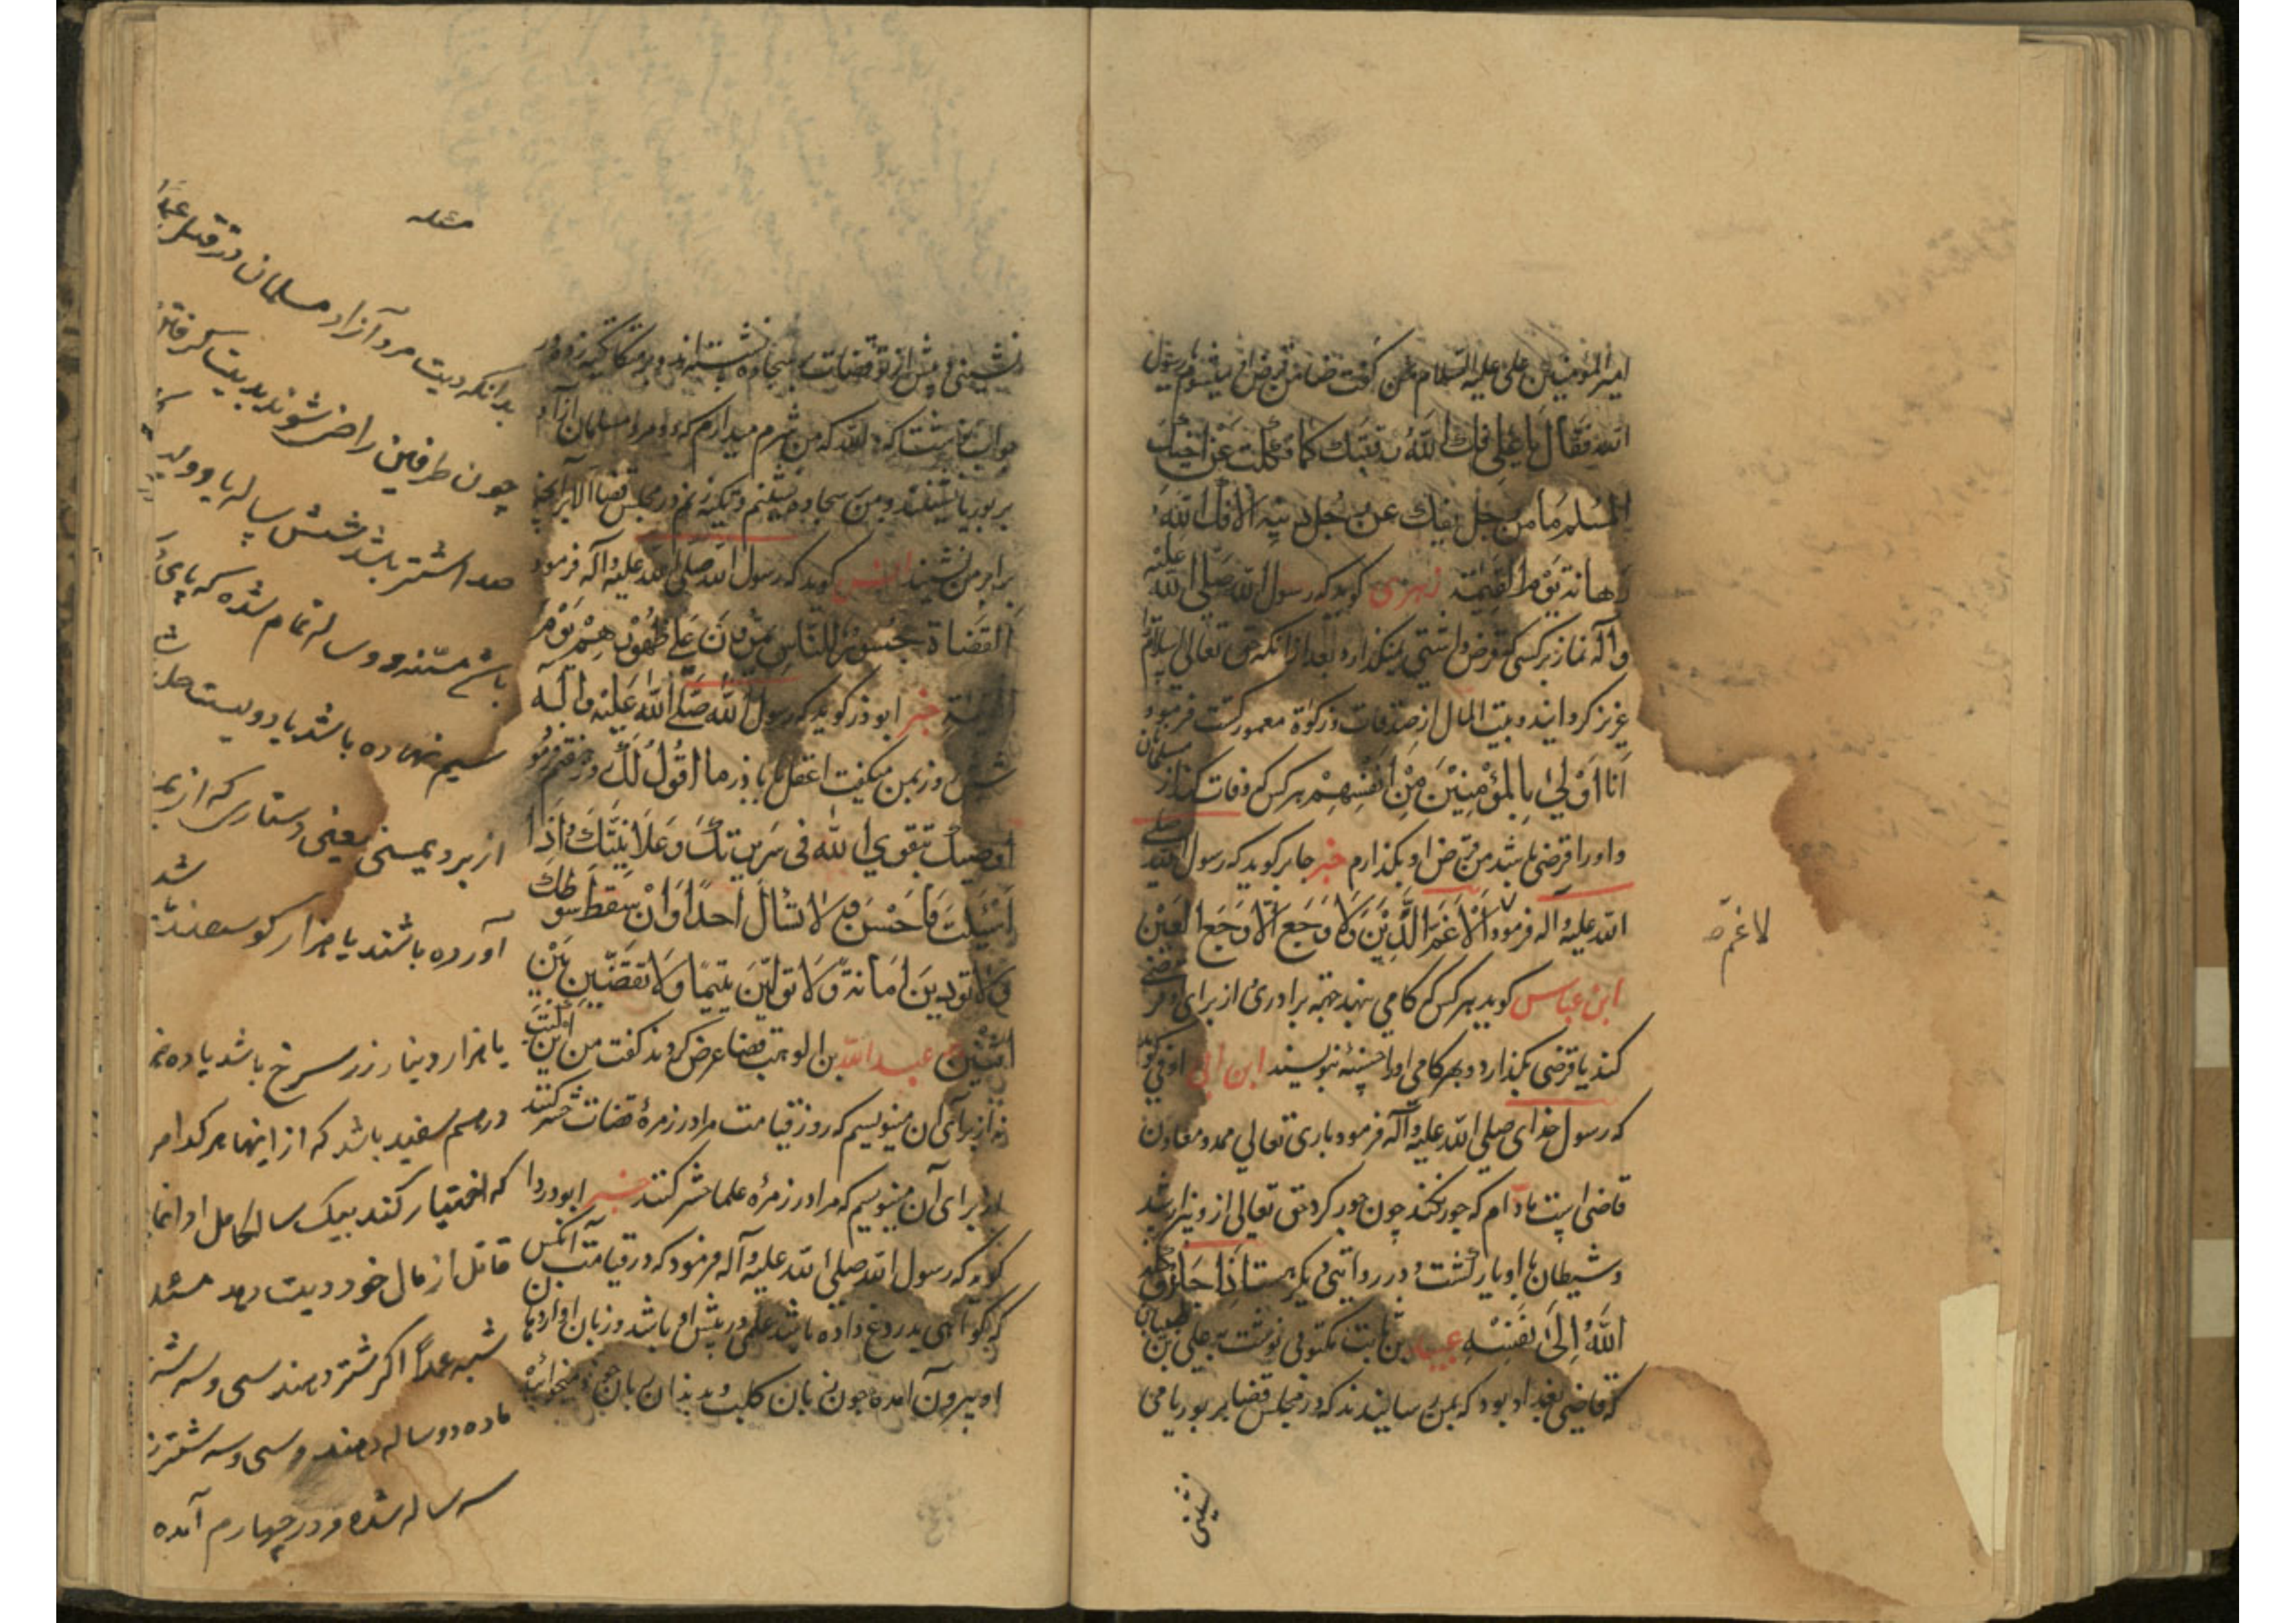 امیر المؤمنین علی علیه السلام من گفت ضامن قرض او میشوم یا رسول
الله فقال یا علی فک الله رقبتک کما فککت عن اخیک
المسلم ما من رجل یفک عن رجل دینه الا فک الله
رهانه یوم القیمة زهری گوید که رسول الله صلی الله علیه
و آله نماز بر کسی که قرض داشتی نمیگذارد بعد از آنکه حق تعالی اسلام
عزیز گردانید و بیت المال از صدقات و زکوة معمور گشت فرمود
انا اولی بالمؤمنین من انفسهم هر کس که وفات کند از مسلمانان
و او را قرضی باشد من قرض او بگذارم خبر جابر گوید که رسول الله صلی
الله علیه و آله فرمود لا غم الا غم الدین و لا وجع الا وجع العین
ابن عباس گوید هر کس که گامی نهد جهة برادری از برای او قرضی
کند یا قرضی بگذارد و بهر گامی او را حسنه بنویسند ابن ابی اوفی گوید
که رسول خدای صلی الله علیه و آله فرمود باری تعالی ممد و معاون
قاضی است مادام که جور نکند چون جور کرد حق تعالی از و بیزار شد
و شیطان با او یار گشت و در روایتی دیگر هست اذا جار وکله
الله الی نفسه بن ثابت مکتوبی نوشت به علی بن ظبیان
که قاضی بغداد بود که بمن رسانیدند که در مجلس قضا بر بوریا می
نشینی
لا غم صح
نشینی و پیش از تو قضات بر سجاده نشسته‌اند و بر متکا تکیه زده در
جواب نوشت که و الله که من شرم میدارم که دو مرد مسلمان آزاد
بر بوریا نشینند و من بر سجاده نشینم و تکیه زنم در مجلس قضا الا بر آنچه
برابر من نشیند انس گوید که رسول الله صلی الله علیه و آله فرمود
القضاة جسور للناس یمرون علی ظهورهم یوم
القیمة خبر ابوذر گوید که رسول الله صلی الله علیه و آله
شش روز بمن میگفت اعقل یا باذر ما اقول لک روز هفتم فرمود
اوصیک بتقوی الله فی سریرتک و علانیتک و اذا
اسئلت فاحسن و لا تسأل احدا و ان سقط سوطک
و لا تودین امانة و لا تولین یتیما و لا تقضین بین
اثنین عبدالله بن الوهب قضا عرض کردند گفت من این
نه از برای آن مینویسم که روز قیامت مرا در زمرهٔ قضات حشر کنند
از برای آن مینویسم که مرا در زمرهٔ علما حشر کنند خبر ابودردا
گوید که رسول الله صلی الله علیه و آله فرمود که در قیامت آنکس
که گواهی بدروغ داده باشد علمی در پیش او باشد و زبان او از دهان
او بیرون آمده چون زبان کلب و بدان زبان
مسئله
بدانکه دیت مرد آزاد مسلمان در قتل عمداً
چون طرفین راضی شوند بدیت گرفتن
صد اشتر باشد شش ساله یا دویست
سیم نهاده باشد یا دویست حله
از برد یمنی یعنی دستاری که از یمن
آورده باشند یا هزار گوسفند باشد
یا هزار دینار زر سرخ باشد یا ده هزار
درهم سفید باشد که از اینها هر کدام
که اختیار کند بیک سال کامل ادا نماید
قاتل از مال خود دیت دهد مسئله
شبه عمداً اگر شتر دهند سی و سه شتر
ماده دو ساله دهند و سی و سه شتر
سه ساله شده و در چهارم آمده